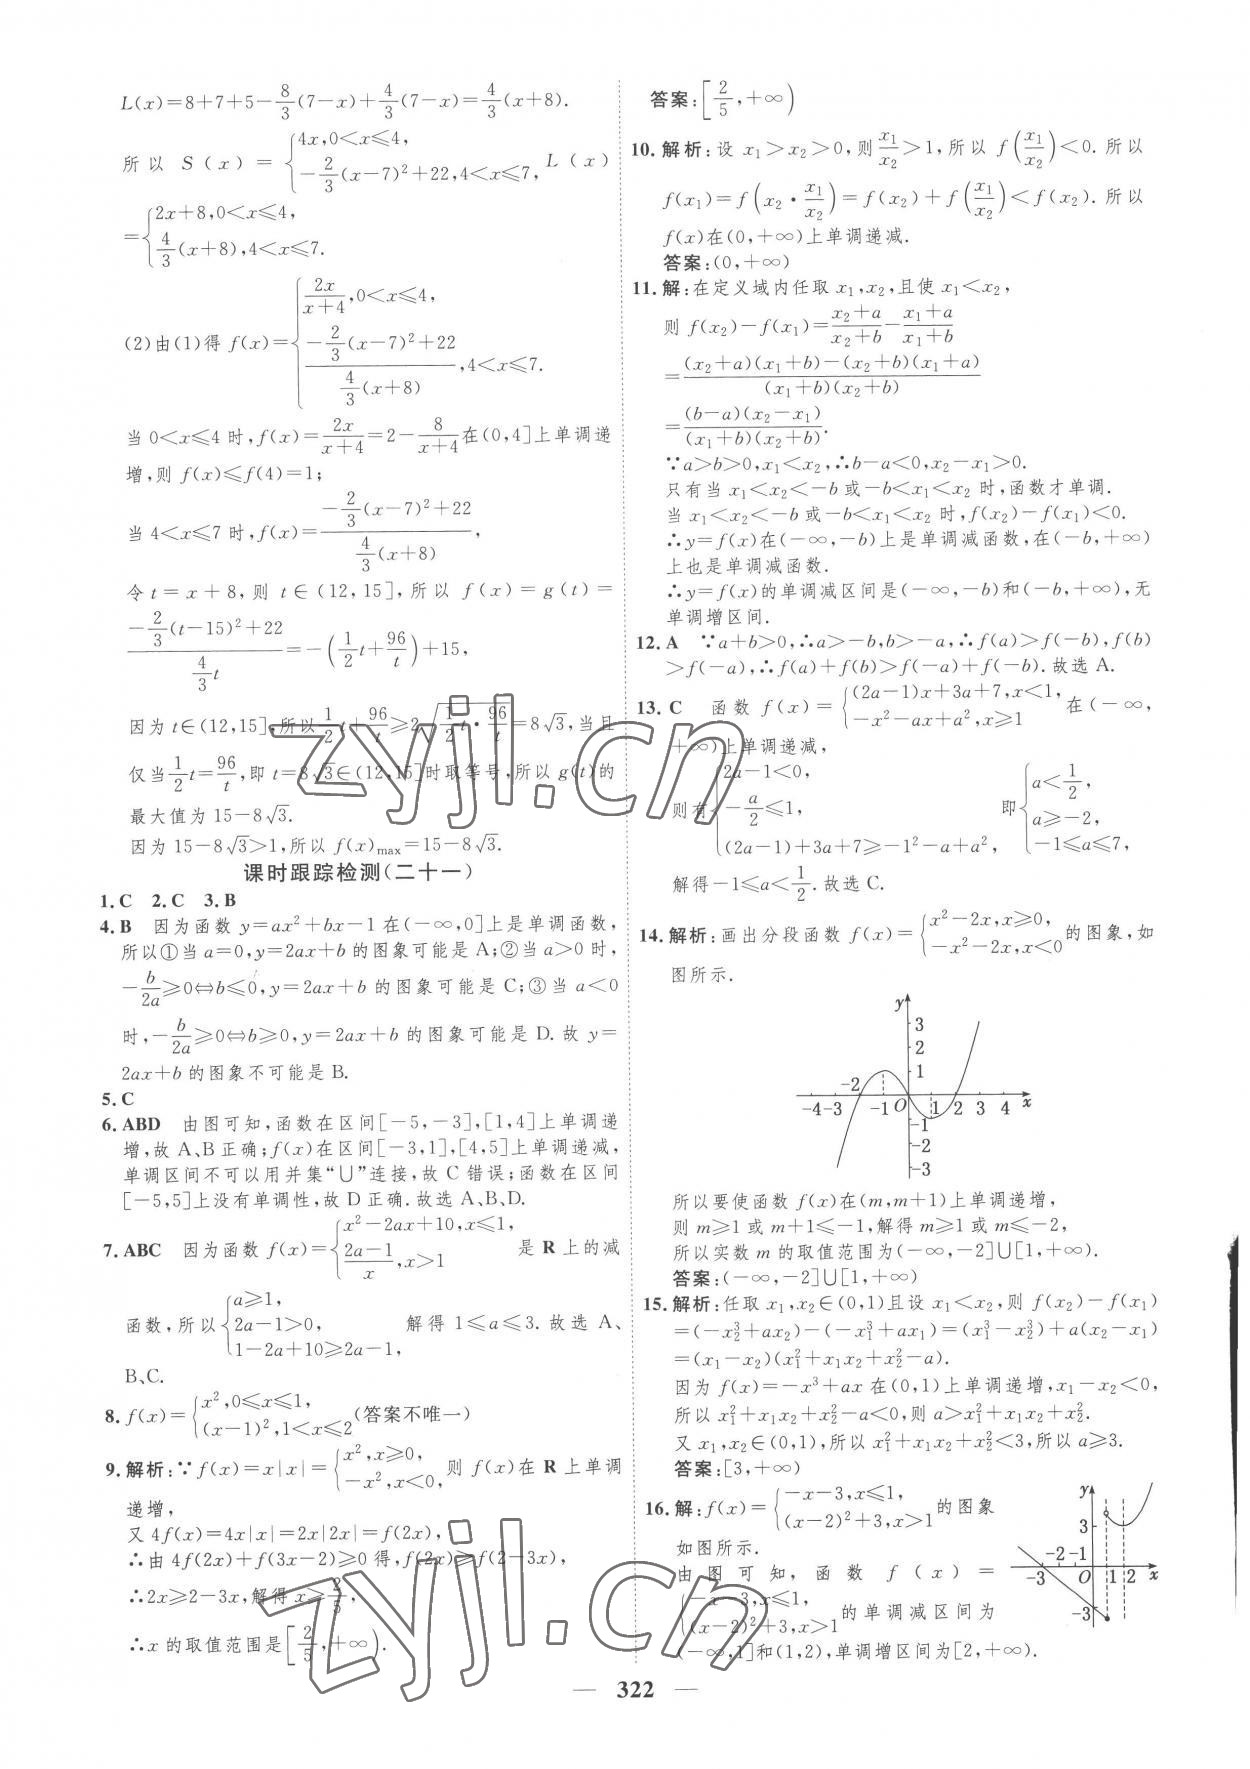 L(x)=8+7+5-8/3(7-x)+4/3(7-x)=4/3(x+8).
所以 S(x)={4x,0<x⩽4, -2/3(x-7)²+22,4<x⩽7, L(x)
={2x+8,0<x⩽4, 4/3(x+8),4<x⩽7.
(2)由(1)得 f(x)={2x/(x+4),0<x⩽4, (-2/3(x-7)²+22)/(4/3(x+8)),4<x⩽7.
当 0<x⩽4 时,f(x)=2x/(x+4)=2-8/(x+4)在(0,4]上单调递
增,则 f(x)⩽f(4)=1;
当 4<x⩽7 时,f(x)=(-2/3(x-7)²+22)/(4/3(x+8)),
令 t=x+8,则 t∈(12,15],所以 f(x)=g(t)=
(-2/3(t-15)²+22)/(4/3 t)=-(1/2 t+96/t)+15,
因为 t∈(12,15],所以 1/2 t+96/t⩾2√(1/2 t·96/t)=8√3,当且
仅当 1/2 t=96/t,即 t=8√3∈(12,15]时取等号,所以 g(t)的
最大值为 15-8√3.
因为 15-8√3>1,所以 f(x)max=15-8√3.
课时跟踪检测(二十一)
1.C 2.C 3.B
4.B 因为函数 y=ax²+bx-1 在(-∞,0]上是单调函数,
所以①当 a=0,y=2ax+b 的图象可能是 A;②当 a>0 时,
-b/2a⩾0⇔b⩽0,y=2ax+b 的图象可能是 C;③当 a<0
时,-b/2a⩾0⇔b⩾0,y=2ax+b 的图象可能是 D.故 y=
2ax+b 的图象不可能是 B.
5.C
6.ABD 由图可知,函数在区间[-5,-3],[1,4]上单调递
增,故 A、B正确;f(x)在区间[-3,1],[4,5]上单调递减,
单调区间不可以用并集“∪”连接,故 C 错误;函数在区间
[-5,5]上没有单调性,故 D 正确.故选 A、B、D.
7.ABC 因为函数 f(x)={x²-2ax+10,x⩽1, (2a-1)/x,x>1 是 R 上的减
函数,所以{a⩾1, 2a-1>0, 1-2a+10⩾2a-1, 解得 1⩽a⩽3.故选 A、
B、C.
8.f(x)={x²,0⩽x⩽1, (x-1)²,1<x⩽2(答案不唯一)
9.解析:∵f(x)=x|x|={x²,x⩾0, -x²,x<0, 则 f(x)在 R 上单调
递增,
又 4f(x)=4x|x|=2x|2x|=f(2x),
∴由 4f(2x)+f(3x-2)⩾0 得,f(2x)⩾f(2-3x),
∴2x⩾2-3x,解得 x⩾2/5,
∴x 的取值范围是[2/5,+∞).
答案:[2/5,+∞)
10.解析:设 x₁>x₂>0,则 x₁/x₂>1,所以 f(x₁/x₂)<0.所以
f(x₁)=f(x₂·x₁/x₂)=f(x₂)+f(x₁/x₂)<f(x₂).所以
f(x)在(0,+∞)上单调递减.
答案:(0,+∞)
11.解:在定义域内任取 x₁,x₂,且使 x₁<x₂,
则 f(x₂)-f(x₁)=(x₂+a)/(x₂+b)-(x₁+a)/(x₁+b)
=((x₂+a)(x₁+b)-(x₂+b)(x₁+a))/((x₁+b)(x₂+b))
=((b-a)(x₂-x₁))/((x₁+b)(x₂+b)).
∵a>b>0,x₁<x₂,∴b-a<0,x₂-x₁>0.
只有当 x₁<x₂<-b 或-b<x₁<x₂ 时,函数才单调.
当 x₁<x₂<-b 或-b<x₁<x₂ 时,f(x₂)-f(x₁)<0.
∴y=f(x)在(-∞,-b)上是单调减函数,在(-b,+∞)
上也是单调减函数.
∴y=f(x)的单调减区间是(-∞,-b)和(-b,+∞),无
单调增区间.
12.A ∵a+b>0,∴a>-b,b>-a,∴f(a)>f(-b),f(b)
>f(-a),∴f(a)+f(b)>f(-a)+f(-b).故选 A.
13.C 函数 f(x)={(2a-1)x+3a+7,x<1, -x²-ax+a²,x⩾1 在(-∞,
+∞)上单调递减,
则有{2a-1<0, -a/2⩽1, (2a-1)+3a+7⩾-1²-a+a², 即{a<1/2, a⩾-2, -1⩽a⩽7,
解得-1⩽a<1/2.故选 C.
14.解析:画出分段函数 f(x)={x²-2x,x⩾0, -x²-2x,x<0 的图象,如
图所示.
y
3
2
1
-2
-4 -3 -1 O 1 2 3 4 x
-1
-2
-3
所以要使函数 f(x)在(m,m+1)上单调递增,
则 m⩾1 或 m+1⩽-1,解得 m⩾1 或 m⩽-2,
所以实数 m 的取值范围为(-∞,-2]∪[1,+∞).
答案:(-∞,-2]∪[1,+∞)
15.解析:任取 x₁,x₂∈(0,1)且设 x₁<x₂,则 f(x₂)-f(x₁)
=(-x₂³+ax₂)-(-x₁³+ax₁)=(x₁³-x₂³)+a(x₂-x₁)
=(x₁-x₂)(x₁²+x₁x₂+x₂²-a).
因为 f(x)=-x³+ax 在(0,1)上单调递增,x₁-x₂<0,
所以 x₁²+x₁x₂+x₂²-a<0,则 a>x₁²+x₁x₂+x₂².
又 x₁,x₂∈(0,1),所以 x₁²+x₁x₂+x₂²<3,所以 a⩾3.
答案:[3,+∞)
16.解:f(x)={-x-3,x⩽1, (x-2)²+3,x>1 的图象
如图所示.
由图可知,函数 f(x)=
{-x-3,x⩽1, (x-2)²+3,x>1 的单调减区间为
(-∞,1]和(1,2),单调增区间为[2,+∞).
y
3
-2 -1
-3 O 1 2 x
-3
322
zyjl.cn
zyjl.cn